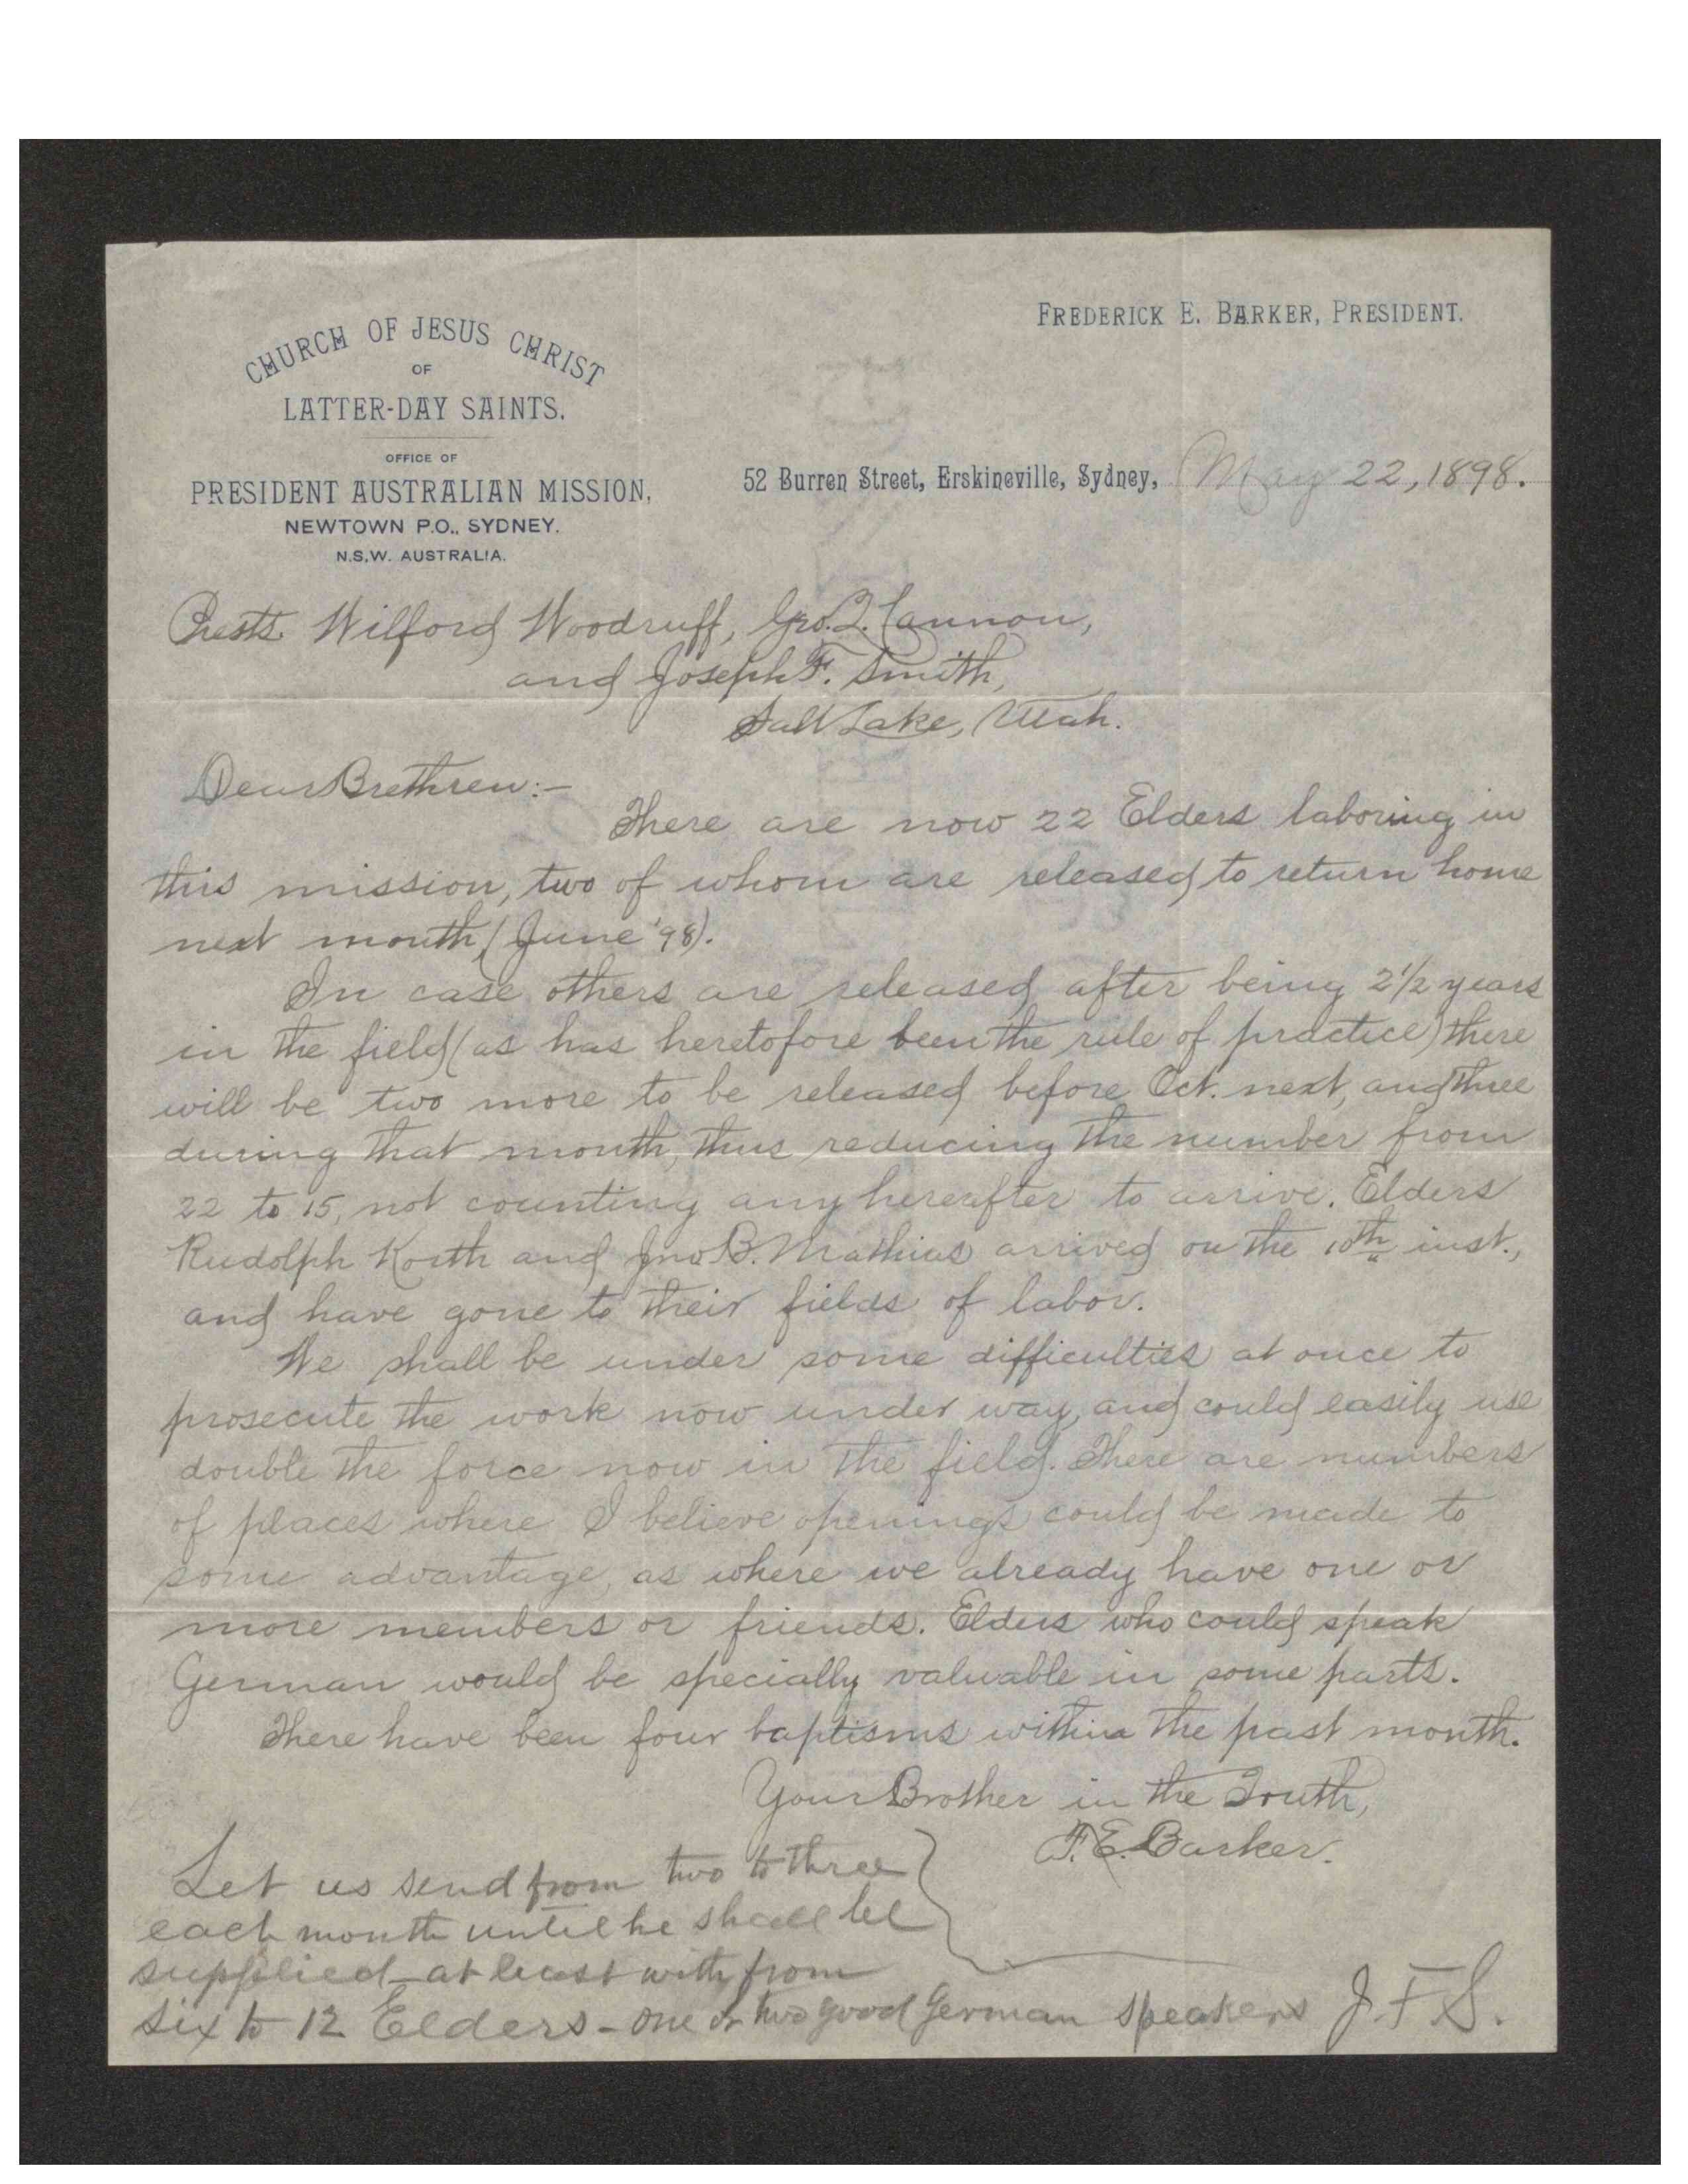 CHURCH OF JESUS CHRIST
OF
LATTER-DAY SAINTS.
OFFICE OF
PRESIDENT AUSTRALIAN MISSION,
NEWTOWN P.O., SYDNEY.
N.S.W. AUSTRALIA.
FREDERICK E. BARKER, PRESIDENT.
52 Burren Street, Erskineville, Sydney, May 22, 1898.
Prests. Wilford Woodruff, Geo. Q. Cannon,
and Joseph F. Smith,
Salt Lake, Utah.
Dear Brethren:-
There are now 22 Elders laboring in
this mission, two of whom are released to return home
next month, (June '98).
In case others are released after being 2 1/2 years
in the field (as has heretofore been the rule of practice) there
will be two more to be released before Oct. next, and three
during that month, thus reducing the number from
22 to 15, not counting any hereafter to arrive. Elders
Rudolph Korth and Jno B. Mathias arrived on the 10th inst.,
and have gone to their fields of labor.
We shall be under some difficulties at once to
prosecute the work now under way, and could easily use
double the force now in the field. There are numbers
of places where I believe openings could be made to
some advantage, as where we already have one or
more members or friends. Elders who could speak
German would be specially valuable in some parts.
There have been four baptisms within the past month.
Your Brother in the Truth,
F. E. Barker.
Let us send from two to three
each month until he shall be
supplied - at least with from
six to 12 Elders - one or two good German speakers J. F. S.